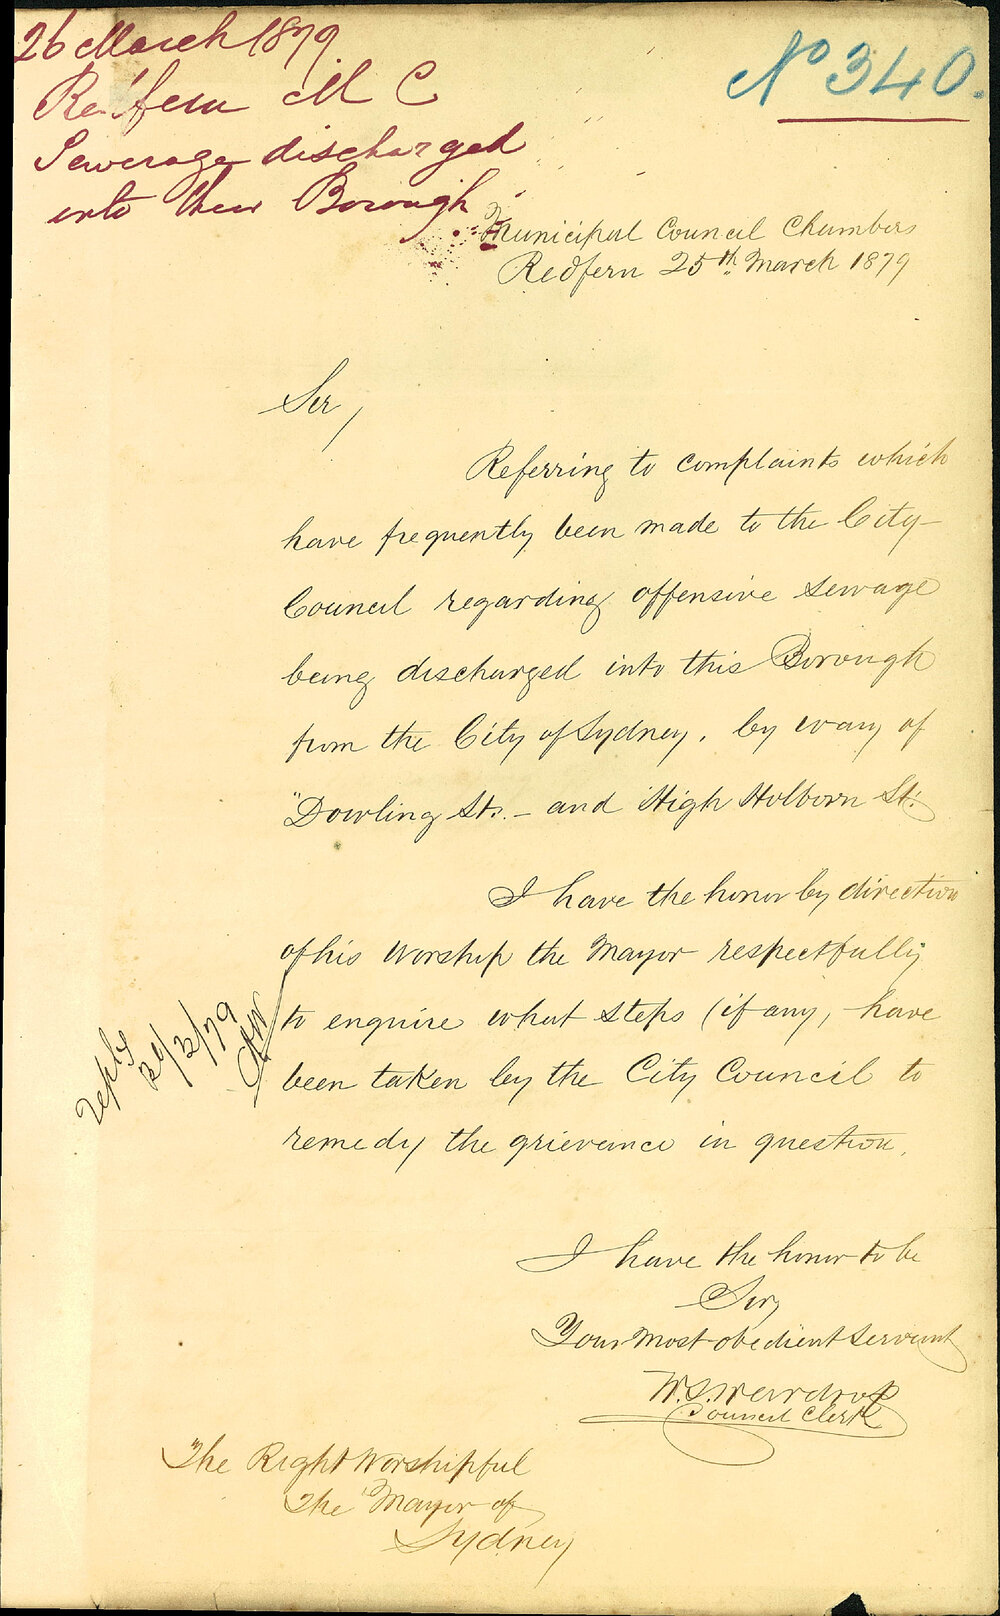 26 March 1879
Redfern M C
Sewerage discharged
into their Borough
No 340.
Municipal Council Chambers
Redfern 25th March 1879
Sir,
Referring to complaints which
have frequently been made to the City
Council regarding offensive sewage
being discharged into this Borough
from the City of Sydney, by way of
"Dowling St. - and High Holborn St.
I have the honor by direction
of his Worship the Mayor respectfully
to enquire what steps (if any, have
been taken by the City Council to
remedy the grievance in question.
reply
/3/79
I have the honor to be
Sir,
Your most obedient servant
W.S. Wardrop
Council Clerk
The Right Worshipful
The Mayor of
Sydney